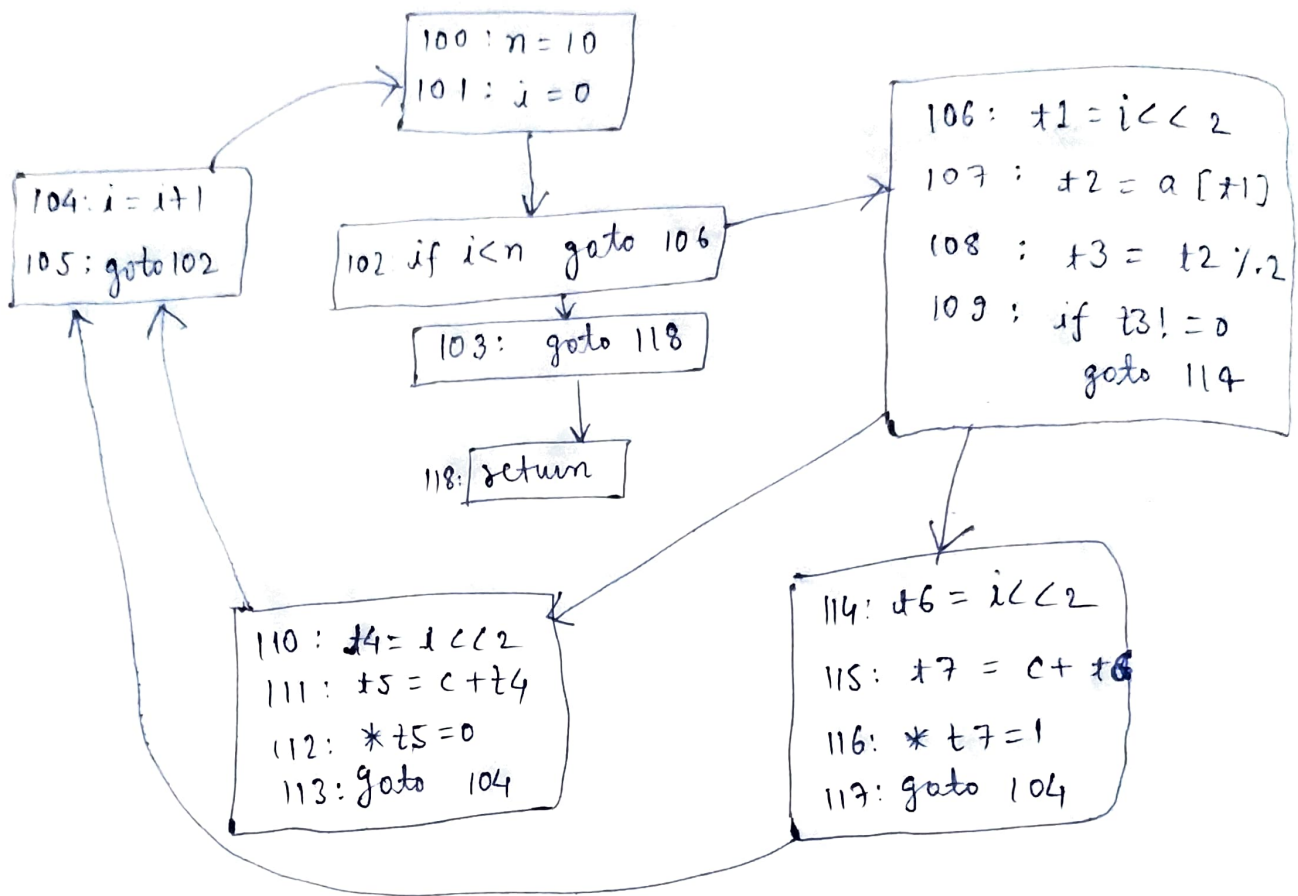 100 : n = 10
101 : i = 0
104: i = i+1
105: goto 102
102 if i<n goto 106
103: goto 118
118: return
106: t1 = i<< 2
107 : t2 = a [t1]
108 : t3 = t2 %.2
109 : if t3! = 0
goto 114
110 : t4= i <<2
111 : t5 = c + t4
112: * t5 = 0
113: goto 104
114: t6 = i<<2
115: t7 = c + t6
116: * t7 = 1
117: goto 104